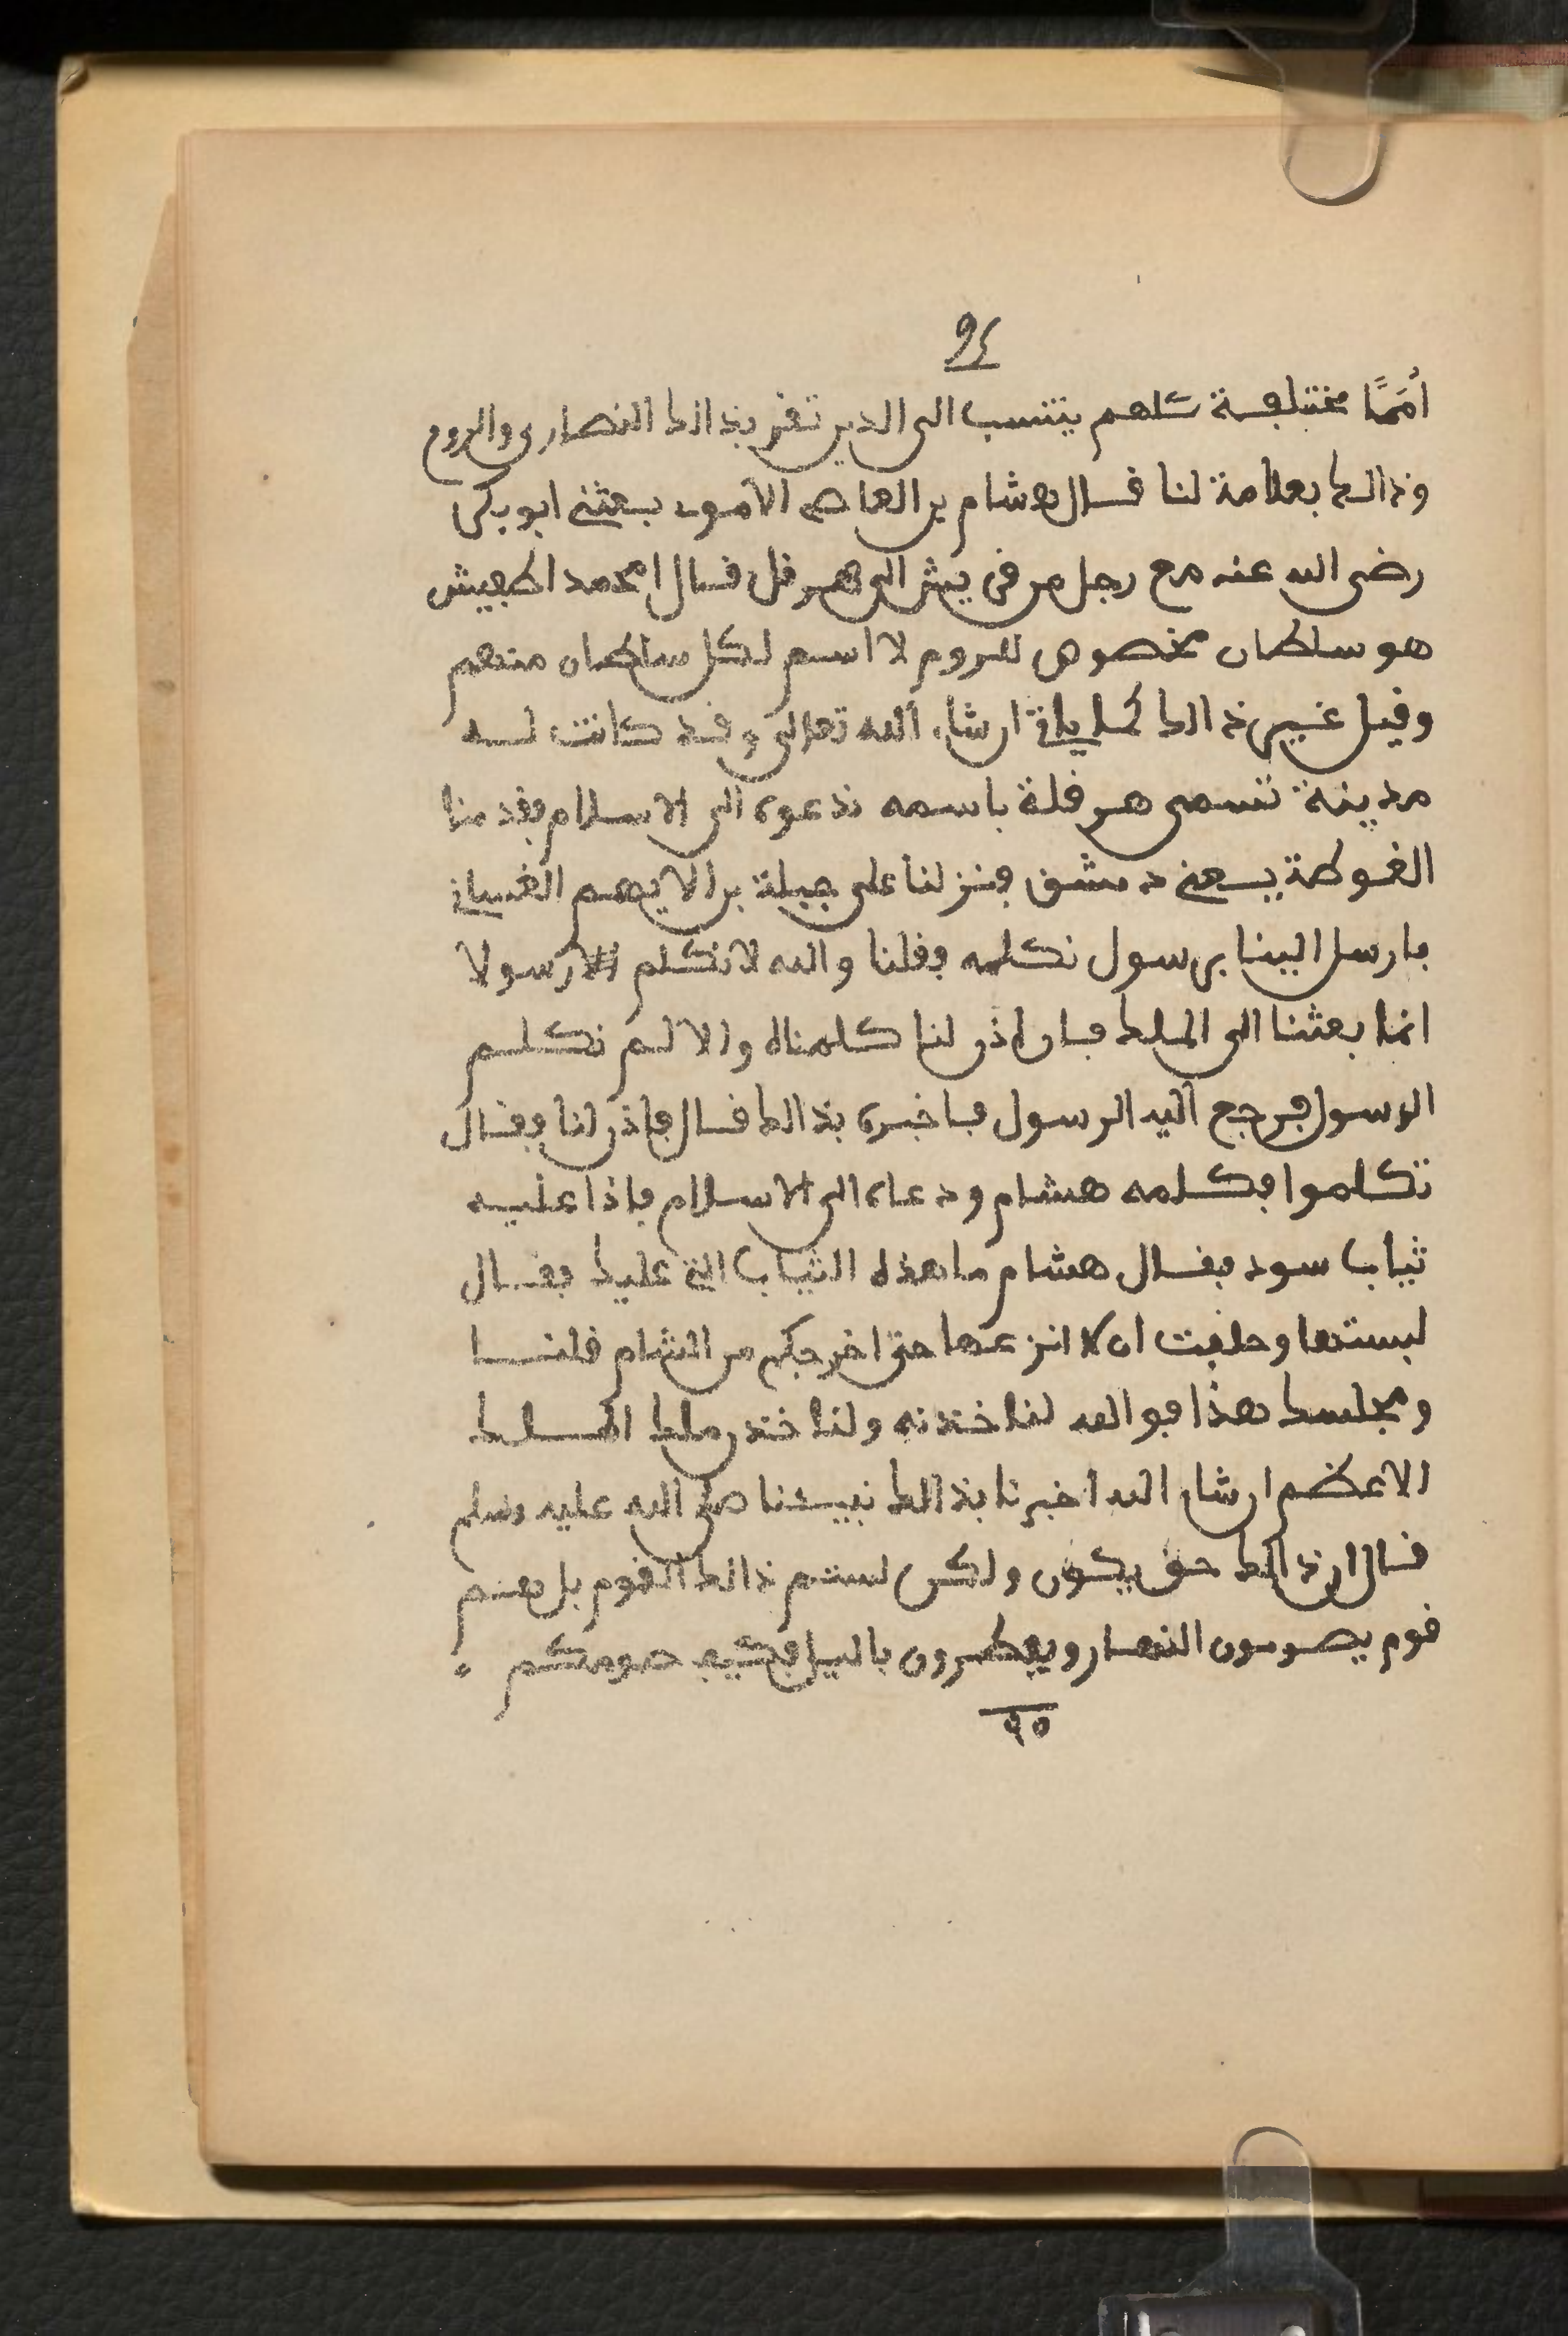 94
أُمَمًا مختلفة كلهم ينتسب الى الدين تقر بذالك النصارى والروم
وذالك بعلامة لنا قال هشام بن العاص الاموى بعثنى ابو بكر
رضى الله عنه مع رجل من قريش الى هرقل قال امحمد اطفيش
هو سلطان مخصوص للروم لا اسم لكل سلطان منهم
وقيل غير ذالك كما ياتى ان شاء الله تعالى وقد كانت له
مدينة تسمى هرقلة باسمه ندعوه الى الاسلام فقدمنا
الغوطة يعنى دمشق فنزلنا على جبلة بن الايهم الغسانى
فارسل الينا برسول نكلمه فقلنا والله لا نكلم رسولا
انما بعثنا الى الملك فان اذن لنا كلمناه والا لم نكلم
الرسول فرجع اليه الرسول فاخبره بذالك قال فاذن لنا فقال
تكلموا فكلمه هشام ودعاه الى الاسلام فاذا عليه
ثياب سود فقال هشام ما هذه الثياب التى عليك فقال
لبستها وحلفت ان لا انزعها حتى اخرجكم من الشام قلنا
ومجلسك هذا فوالله لناخذنه ولناخذن ملك الملك
الاعظم ان شاء الله اخبرنا بذالك نبيئنا صلى الله عليه وسلم
قال ان ذالك حق يكون ولكن لستم ذالك القوم بل هم
قوم يصومون النهار ويفطرون باليل فكيف صومكم .
٩٥